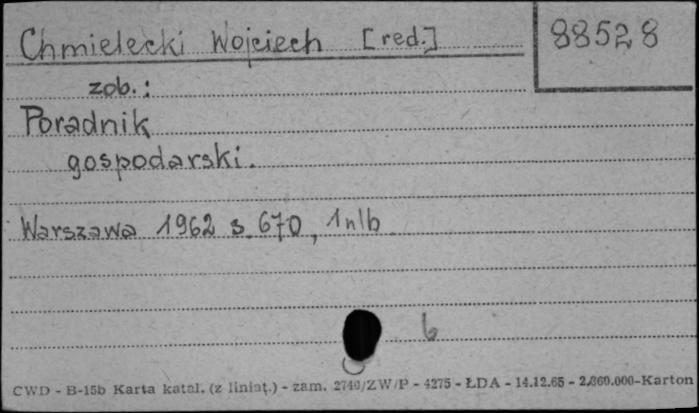 Chmielecki Wojciech [red.]
88528
zob.:
Poradnik
gospodarski.
Warszawa 1962 s. 670, 1nlb
b
CWD - B-15b Karta katal. (z liniat.) - zam. 2740/ZW/P - 4275 - ŁDA - 14.12.65 - 2.860.000-Karton